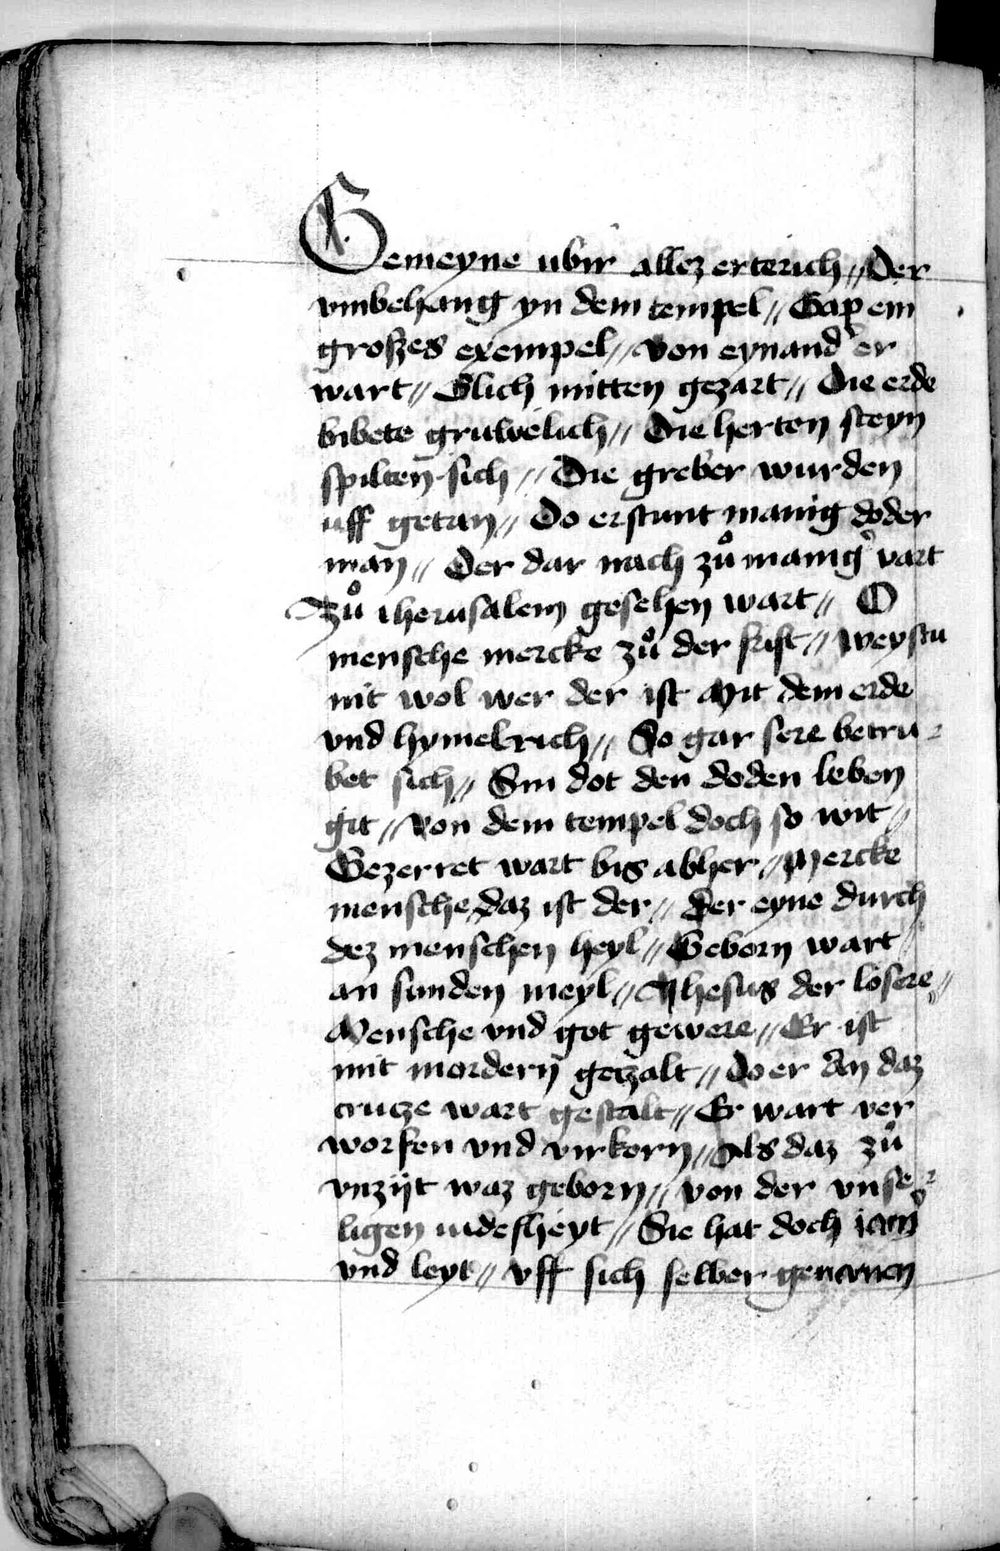 Gemeyne ubir allez erterich // Der
vmbehang yn dem tempel // Gap ein
groszes exempel // Von eynand' er
wart // Glich mitten gezart // Die erde
bibete gruwelich // Die herten steyn
spilten sich // Die greber wurden
uff getan // Do erstunt manig doder
man // Der dar nach zů manig' vart
Zů iherusalem gesehen wart // O
mensche mercke zů der frist // weystu
nit wol wer der ist Mit dem erde
vnd hymelrich // So gar sere betru-
bet sich // Sin dot den doden leben
git // Von dem tempel doch so wit //
Gezerret wart bis abher // Mercke
mensche daz ist der // Der eyne durch
dez menschen heyl // Geborn wart //
an sunden meyl // Ihesus der losere //
Mensche vnd got gewere // Er ist
mit mordern gezalt // Do er an daz
crucze wart gestalt // Er wart ver
worfen vnd virkorn // Als daz zů
vnzijt waz geborn // von der vnse-
ligen iudescheyt // Sie hat doch iam'
vnd leyt // Vff sich selber genomen